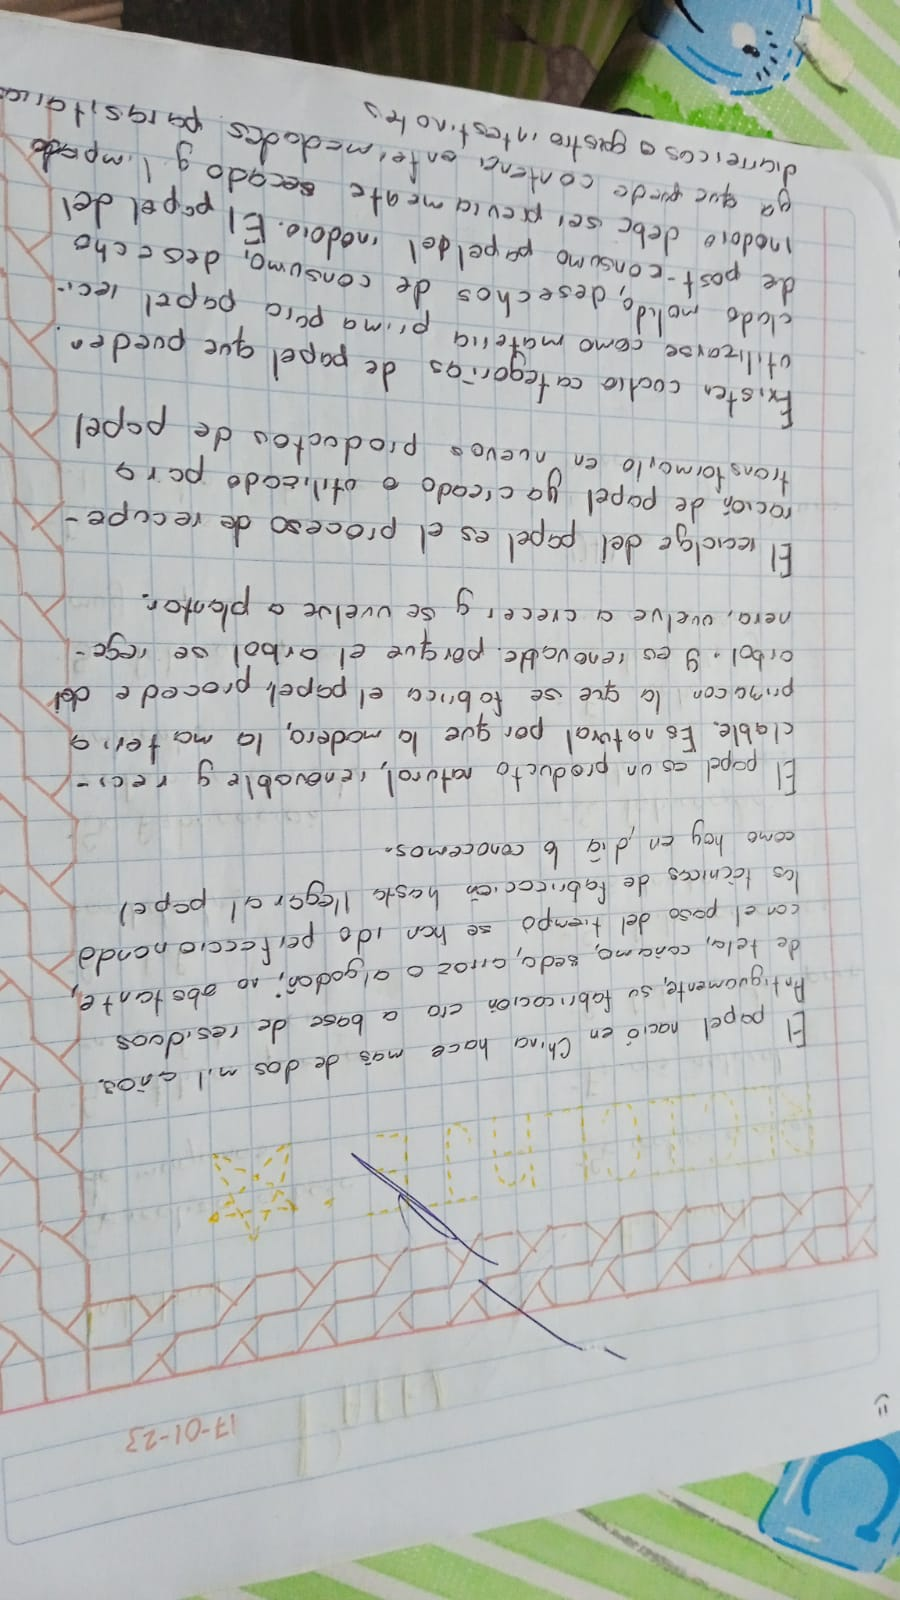 17-01-23
El papel nació en China hace más de dos mil años.
Antiguamente, su fabricación era a base de residuos
de tela, cañamo, seda, arroz o algodón, no obstante,
con el paso del tiempo se han ido perfeccionando
las técnicas de fabricación hasta llegar al papel
como hoy en día lo conocemos.
El papel es un producto natural, renovable y reci-
clable. Es natural por que la madera, la materia
prima con la que se fabrica el papel, procede del
arbol. y es renovable. porque el arbol se rege-
nera, vuelve a crecer y se vuelve a plantar.
El reciclge del papel es el proceso de recupe-
ración de papel ya creado o utilizado para
transformarlo en nuevos productos de papel
Existen coatro categorías de papel que pueden
utilizarse como materia prima para papel reci-
clado molido, desechos de consumo, desecho
de post-consumo papel del inodoro. El papel del
inodoro debe ser previamente secado y limpiado
ya que puede contener enfermedades parasitarias
diarreicas o gastro intestinales